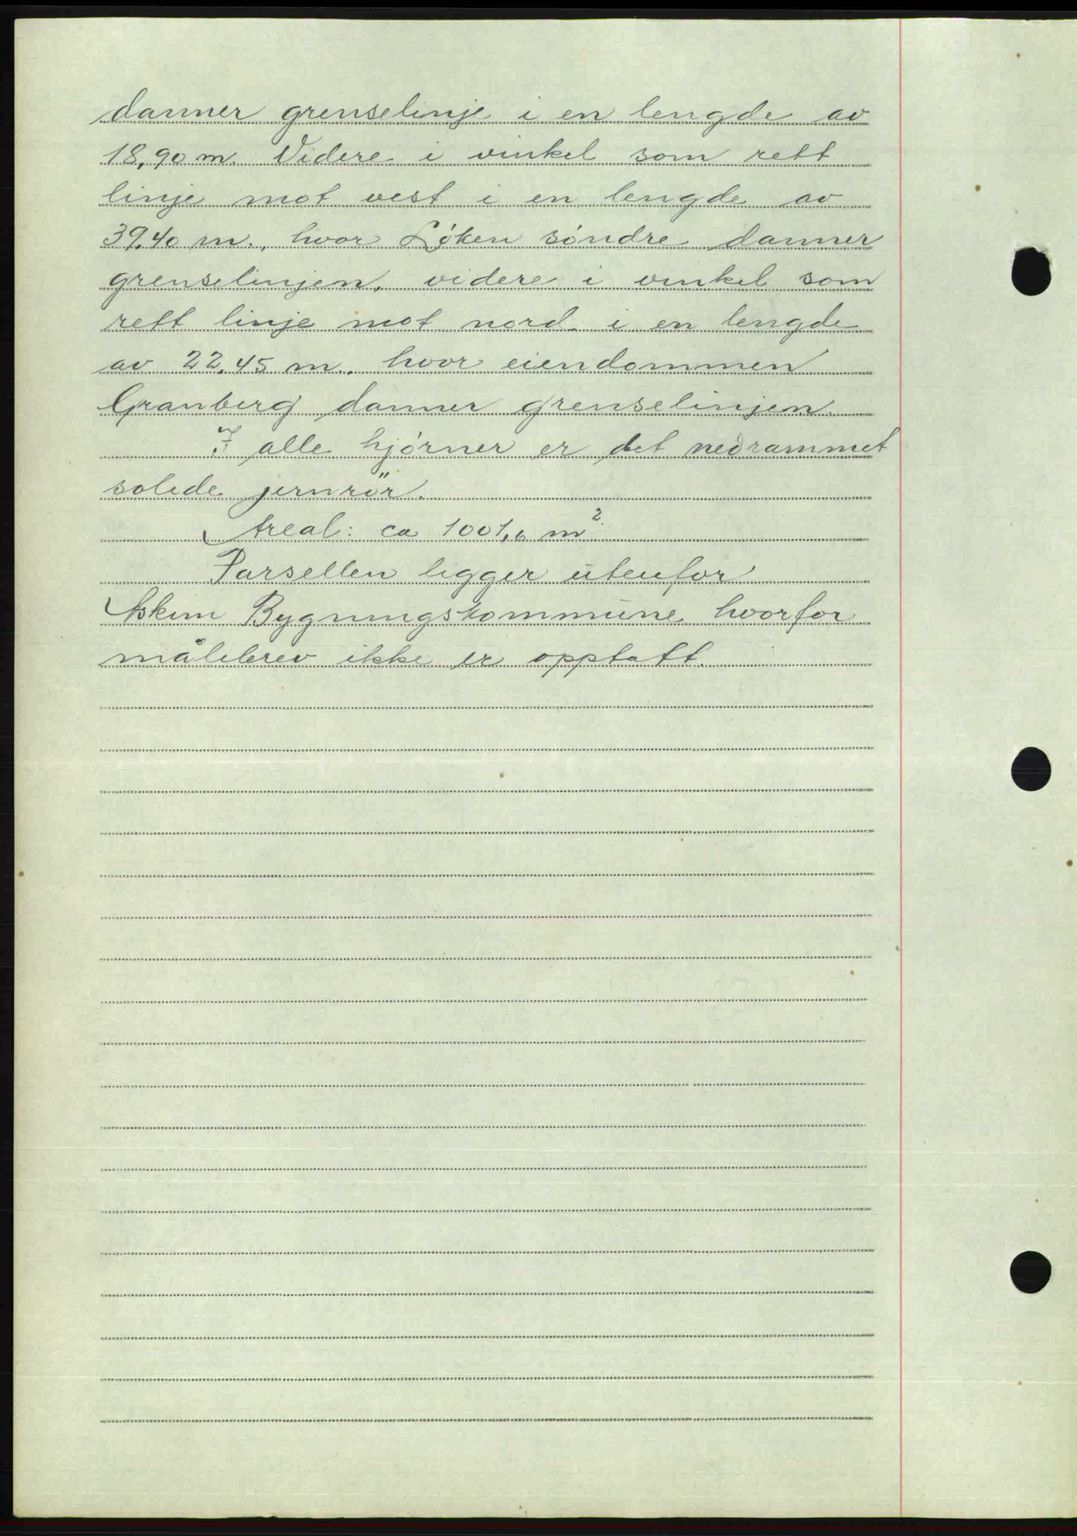 danner grenselinje i en lengde av
18,90 m. Videre i vinkel som rett
linje mot vest i en lengde av
39,40 m., hvor Løken søndre danner
grenselinjen, videre i vinkel som
rett linje mot nord i en lengde
av 22,45 m., hvor eiendommen
Granberg danner grenselinjen.
I alle hjørner er det nedrammet
solide jernrör.
Areal: ca 1001,0 m².
Parsellen ligger utenfor
Askim Bygningskommune, hvorfor
målebrev ikke er opptatt.